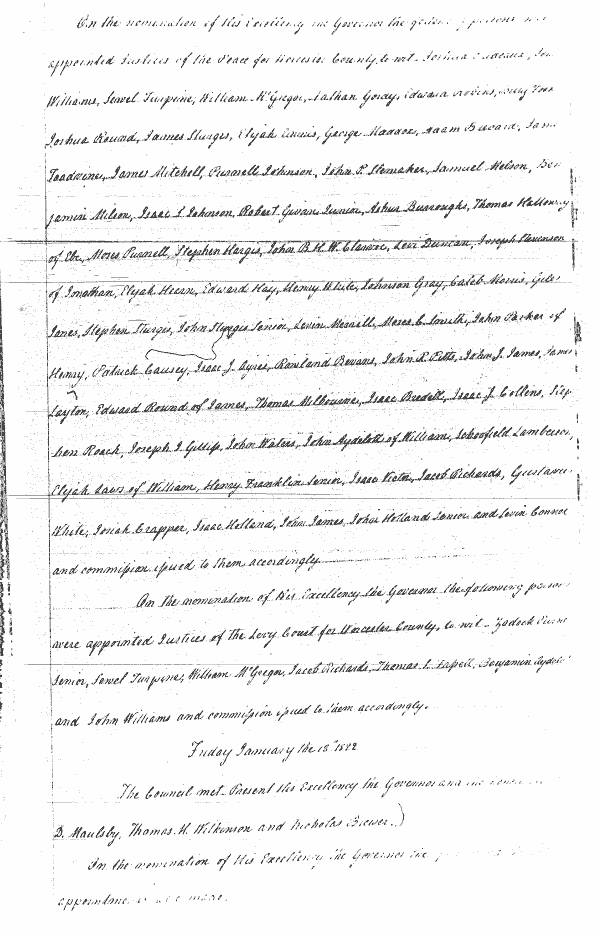 On the nomination of His Excellency the Governor the persons
appointed Justices of the Peace for Worcester County, to wit. Joshua
Williams, Sewel Turpine, William McGregor, Nathan Gordy, Edward
Joshua Round, James Sturges, Elijah Ennis, George Haddox, Adam Bevard,
Toadvine, James Mitchell, Purnell Johnson, John P. Slemaker, Samuel Nelson, Ben
jamin Milson, Isaac S Johnson, Robert Givans Junior, Arthur Burroughs, Thomas Holloway
of Ebe, Moses Purnell, Stephen Hargis, John B. H. W. Clarvoe, Levi Duncan, Joseph Stevenson
of Jonathan, Elijah Hearn, Edward Hay, Henry White, Johnson Gray, Caleb Morris, Giles
Jones, Stephen Sturgis, John Sturgis Senior, Levin Merrill, Moses C. Smith, John Parker of
Henry, Patrick Causey, Isaac J. Ayres, Rowland Bevans, John R. Pitts, John J. James, James
Layton, Edward Round of James, Thomas Milbourne, Isaac Bredell, Isaac J. Collens, Step
hen Roach, Joseph J. Gilliss, John Waters, John Aydelott of William, Schoofield Lamberson,
Elijah Laws of William, Henry Franklin Senior, Isaac Victor, Jacob Richards, Gustavus
White, Josiah Crapper, Isaac Holland, John James, John Holland Senior and Levin Conner
and commission issued to them accordingly.
On the nomination of His Excellency the Governor the following persons
were appointed Justices of the Levy Court for Worcester County, to wit. Zadock
Senior, Sewel Turpine, William McGregor, Jacob Richards, Thomas Benjamin
and John Williams and commission issued to them accordingly.
Friday January the 18th 1822
The Council met. Present His Excellency the Governor and
D. Maulsby, Thomas H. Wilkinson and Nicholas Brewer.
On the nomination of His Excellency the Governor the
appointments are made.